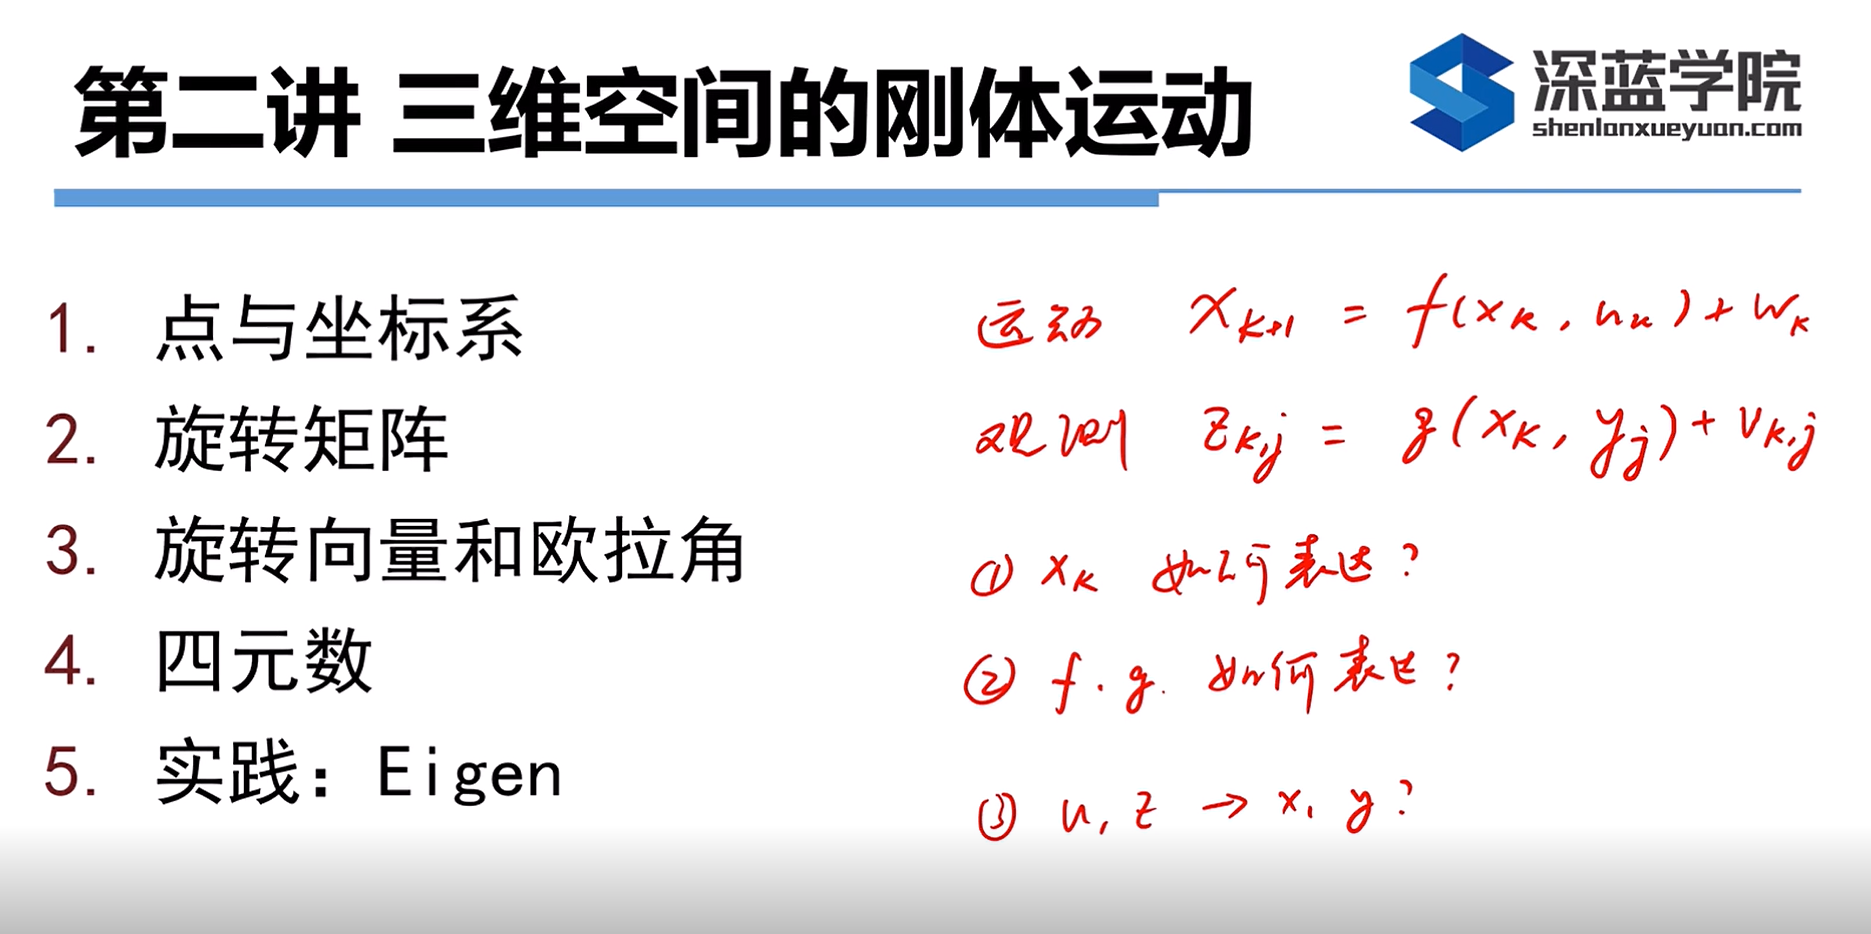 第二讲 三维空间的刚体运动
深蓝学院
shenlanxueyuan.com
1. 点与坐标系
2. 旋转矩阵
3. 旋转向量和欧拉角
4. 四元数
5. 实践：Eigen
运动 x_{k+1} = f(x_k, u_k) + w_k
观测 z_{k,j} = g(x_k, y_j) + v_{k,j}
① x_k 如何表达?
② f. g. 如何表达?
③ u, z → x, y?